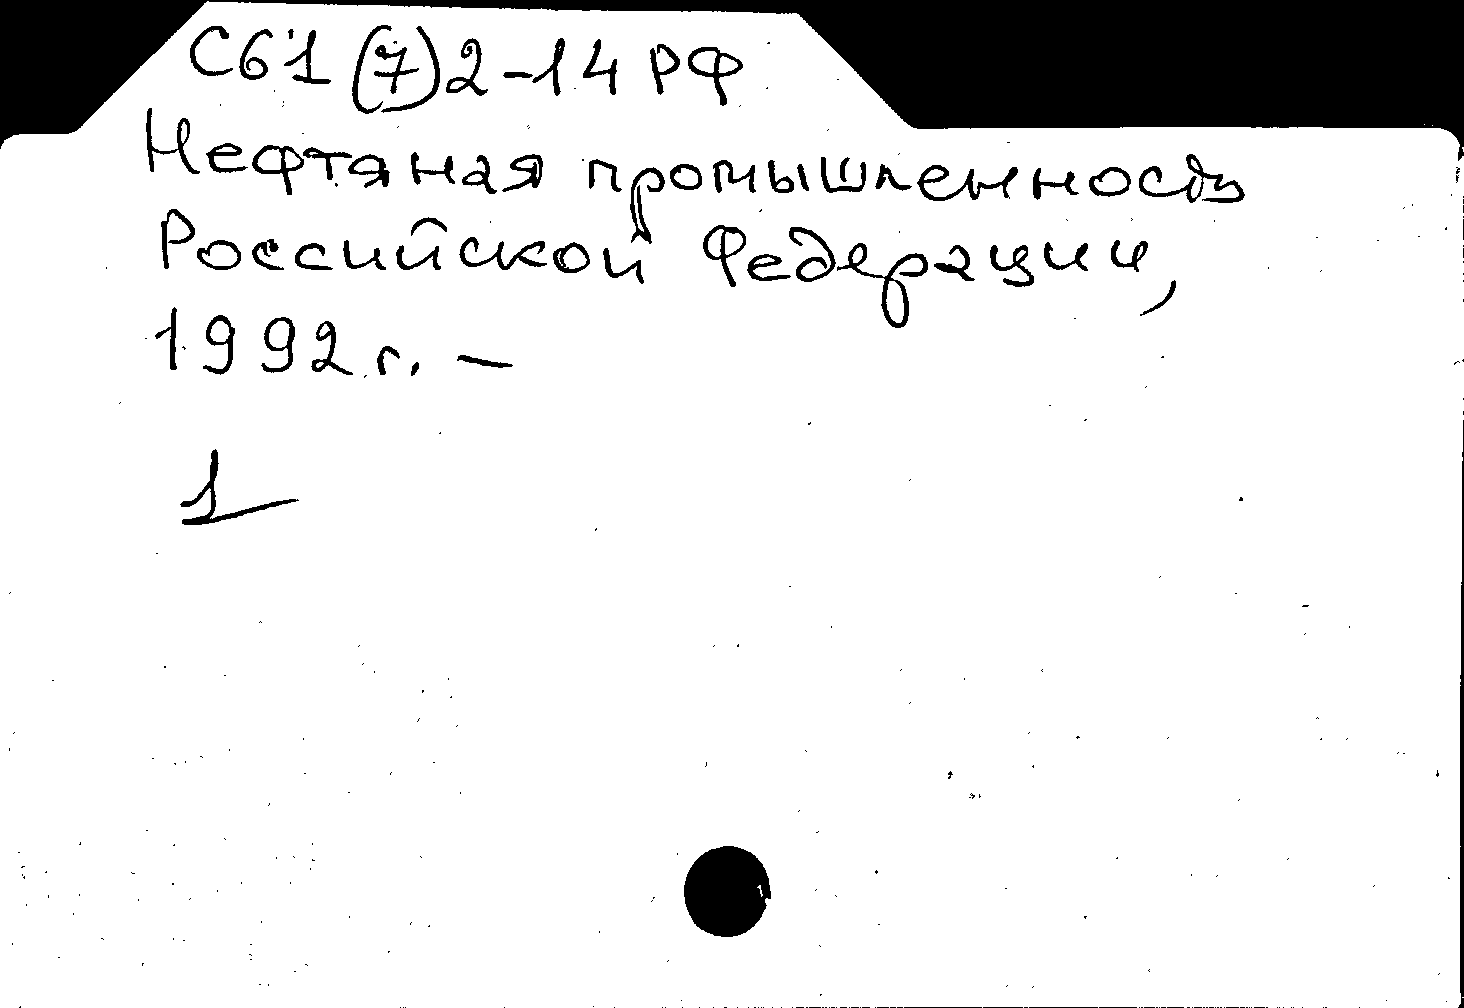 С61(7)2-14 РФ
Нефтяная промышленность
Российской Федерации,
1992 г. –
1